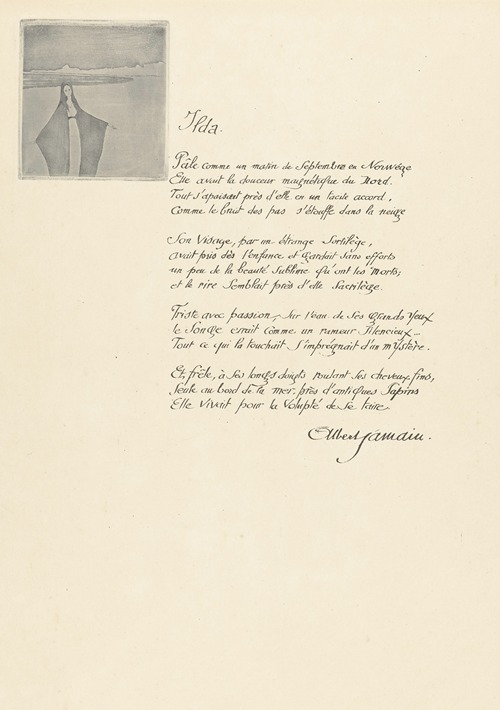 Ilda.
Pâle comme un matin de Septembre en Norwège
Elle avait la douceur magnétique du Nord.
Tout s'apaisait près d'elle en un tacite accord,
Comme le bruit des pas s'étouffe dans la neige
Son Visage, par un étrange Sortilège,
avait pris dès l'enfance et gardait sans efforts
un peu de la beauté sublime qu'ont les Morts;
et le rire Semblait près d'elle Sacrilège.
Triste avec passion, Sur l'eau de Ses grands Yeux
le Songe errait comme un rameur Silencieux...
Tout ce qui la touchait S'imprégnait d'un mYstère.
Et frêle, à Ses longs doigts roulant Ses cheveux fins,
Seule au bord de la mer, près d'antiques Sapins
Elle vivait pour la Volupté de Se taire.
Albert Samain.